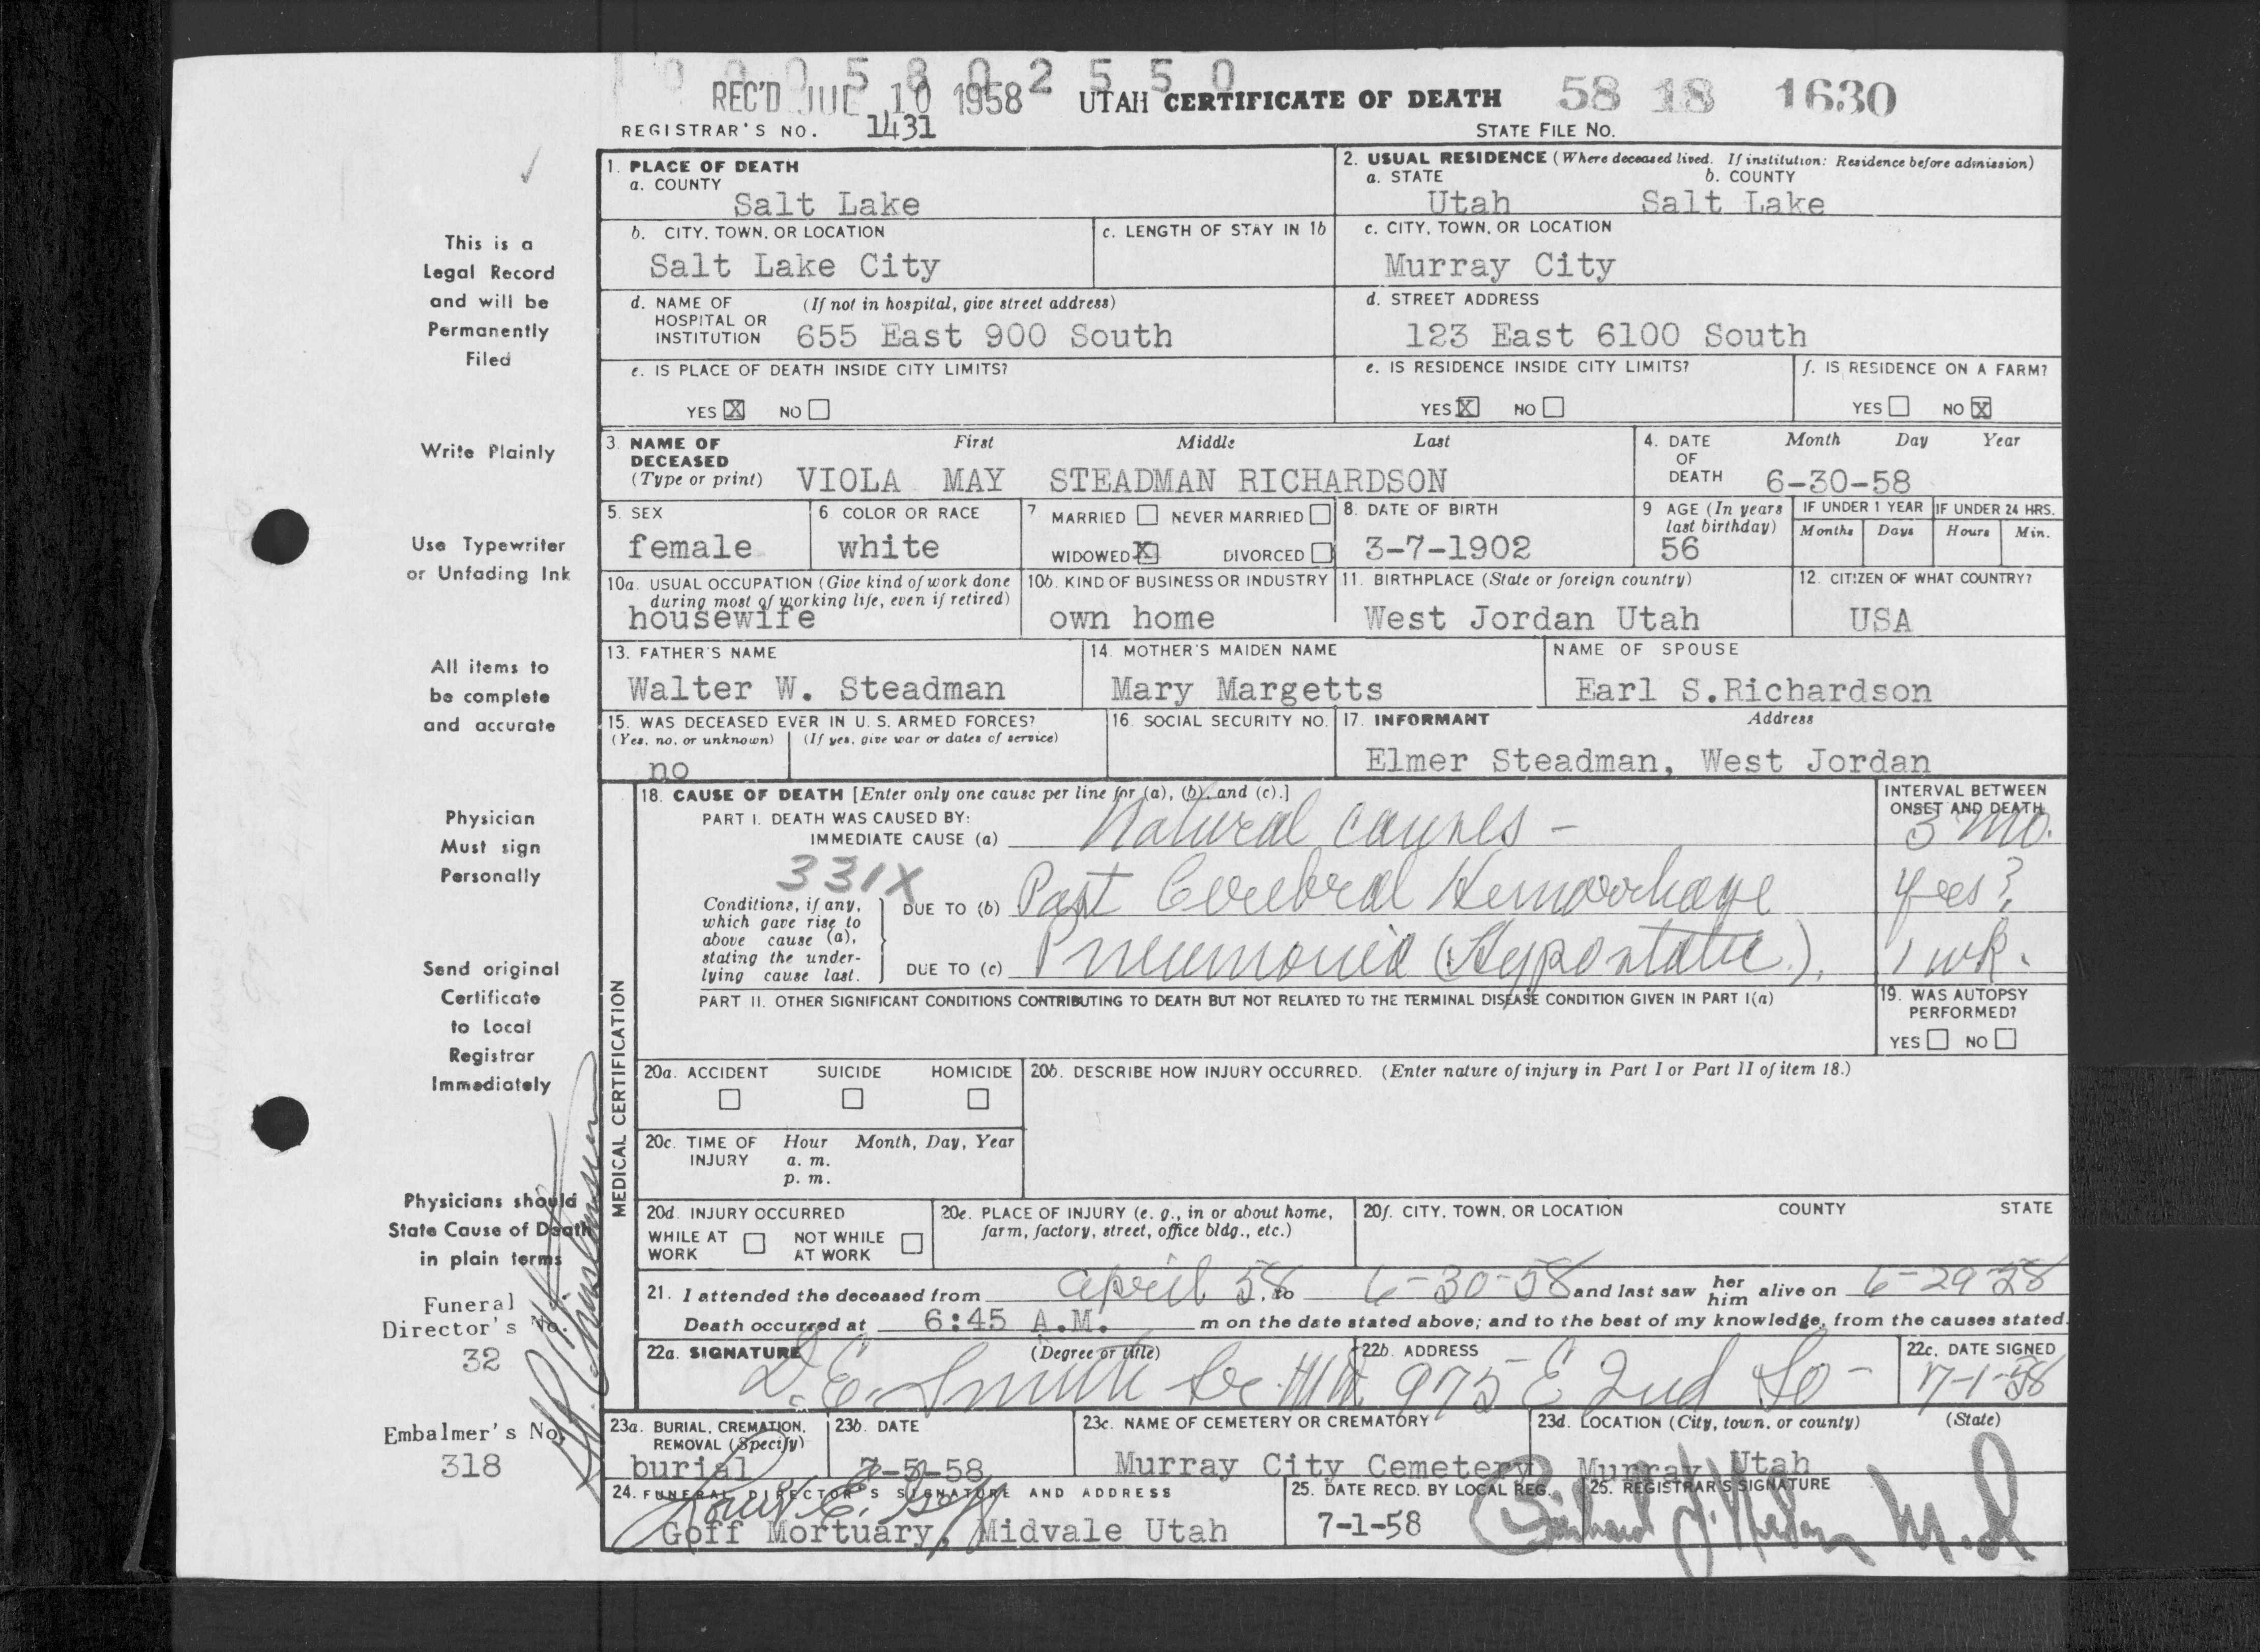 1 0 0 0 5 8 0 2 5 5 0
REC'D JUL 10 1958 UTAH CERTIFICATE OF DEATH 58 18 1630
REGISTRAR'S NO. 1431 STATE FILE NO.
1. PLACE OF DEATH
a. COUNTY
Salt Lake
2. USUAL RESIDENCE (Where deceased lived. If institution: Residence before admission)
a. STATE b. COUNTY
Utah Salt Lake
b. CITY, TOWN, OR LOCATION
Salt Lake City
c. LENGTH OF STAY IN 1b
c. CITY, TOWN, OR LOCATION
Murray City
d. NAME OF (If not in hospital, give street address)
HOSPITAL OR
INSTITUTION 655 East 900 South
d. STREET ADDRESS
123 East 6100 South
e. IS PLACE OF DEATH INSIDE CITY LIMITS?
YES X NO
e. IS RESIDENCE INSIDE CITY LIMITS?
YES X NO
f. IS RESIDENCE ON A FARM?
YES NO X
3. NAME OF First Middle Last
DECEASED
(Type or print) VIOLA MAY STEADMAN RICHARDSON
4. DATE Month Day Year
OF
DEATH 6-30-58
5. SEX
female
6 COLOR OR RACE
white
7 MARRIED NEVER MARRIED
WIDOWED X DIVORCED
8. DATE OF BIRTH
3-7-1902
9 AGE (In years
last birthday)
56
IF UNDER 1 YEAR IF UNDER 24 HRS.
Months Days Hours Min.
10a. USUAL OCCUPATION (Give kind of work done
during most of working life, even if retired)
housewife
10b. KIND OF BUSINESS OR INDUSTRY
own home
11. BIRTHPLACE (State or foreign country)
West Jordan Utah
12. CITIZEN OF WHAT COUNTRY?
USA
13. FATHER'S NAME
Walter W. Steadman
14. MOTHER'S MAIDEN NAME
Mary Margetts
NAME OF SPOUSE
Earl S.Richardson
15. WAS DECEASED EVER IN U. S. ARMED FORCES?
(Yes, no, or unknown) (If yes, give war or dates of service)
no
16. SOCIAL SECURITY NO.
17. INFORMANT Address
Elmer Steadman, West Jordan
MEDICAL CERTIFICATION
18. CAUSE OF DEATH [Enter only one cause per line for (a), (b), and (c).]
PART I. DEATH WAS CAUSED BY:
IMMEDIATE CAUSE (a) Natural causes -
INTERVAL BETWEEN
ONSET AND DEATH
3 mo.
331X
Conditions, if any,
which gave rise to
above cause (a),
stating the under-
lying cause last.
DUE TO (b) Past Cerebral Hemorrhage
DUE TO (c) Pneumonia (Hypostatic).
1 wk.
PART II. OTHER SIGNIFICANT CONDITIONS CONTRIBUTING TO DEATH BUT NOT RELATED TO THE TERMINAL DISEASE CONDITION GIVEN IN PART I(a)
19. WAS AUTOPSY
PERFORMED?
YES NO
20a. ACCIDENT SUICIDE HOMICIDE
20b. DESCRIBE HOW INJURY OCCURRED. (Enter nature of injury in Part I or Part II of item 18.)
20c. TIME OF Hour Month, Day, Year
INJURY a. m.
p. m.
20d. INJURY OCCURRED
WHILE AT NOT WHILE
WORK AT WORK
20e. PLACE OF INJURY (e. g., in or about home,
farm, factory, street, office bldg., etc.)
20f. CITY, TOWN, OR LOCATION COUNTY STATE
21. I attended the deceased from April 58, to 6-30-58 and last saw her him alive on 6-29-58
Death occurred at 6:45 A.M. m on the date stated above; and to the best of my knowledge, from the causes stated.
22a. SIGNATURE (Degree or title)
D. E. Smith Sr. MD
22b. ADDRESS
975 E 2nd So -
22c. DATE SIGNED
7-1-58
23a. BURIAL, CREMATION,
REMOVAL (Specify)
burial
23b. DATE
23c. NAME OF CEMETERY OR CREMATORY
Murray City Cemetery
23d. LOCATION (City, town, or county) (State)
Murray Utah
24. FUNERAL DIRECTOR'S SIGNATURE AND ADDRESS
Goff Mortuary, Midvale Utah
25. DATE RECD. BY LOCAL REG.
7-1-58
25. REGISTRAR'S SIGNATURE
M.D
This is a
Legal Record
and will be
Permanently
Filed
Write Plainly
Use Typewriter
or Unfading Ink
All items to
be complete
and accurate
Physician
Must sign
Personally
Send original
Certificate
to Local
Registrar
Immediately
Physicians should
State Cause of Death
in plain terms
Funeral
Director's No.
32
Embalmer's No.
318